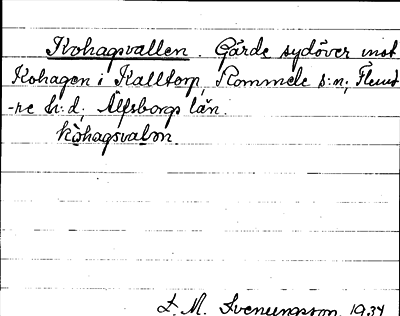 Kohagsvallen. Gärde sydöver inst
Kohagen i Kalltorp, Rommele s:n; Flund
-re h:d; Älfsborgs län.
kòhagsvalon.
L. M. Svenungsson, 1934